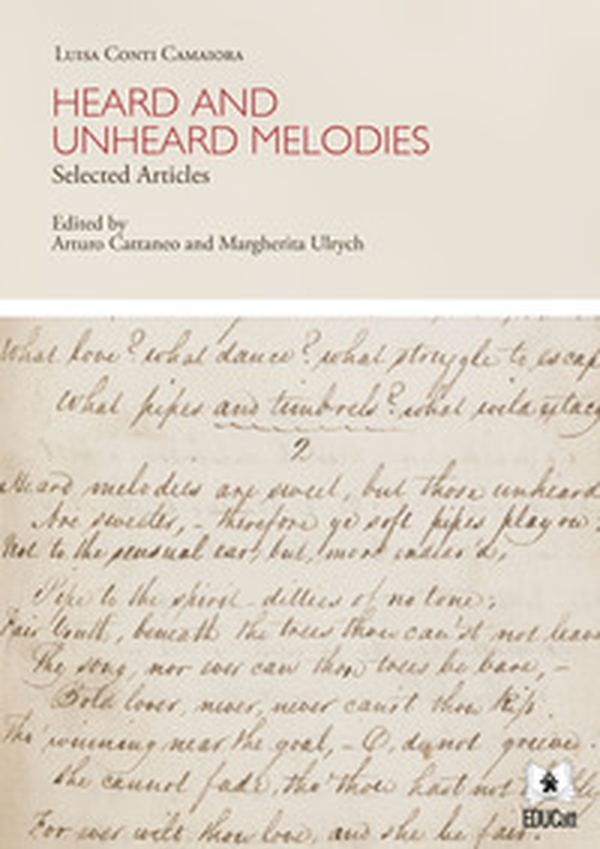 LUISA CONTI CAMAIORA
HEARD AND
UNHEARD MELODIES
Selected Articles
Edited by
Arturo Cattaneo and Margherita Ulrych
What love? what dance? what struggle to escap
What pipes and timbrels? what wild extacy
2
Heard melodies are sweet, but those unheard
Are sweeter,- therefore ye soft pipes play on;
Not to the sensual ear, but, more endear'd,
Pipe to the spirit- ditties of no tone;
Fair Youth, beneath the trees thou can'st not leave
Thy song, nor ever can those trees be bare,-
Bold lover, never, never canst thou kiss
Tho' winning near the goal,- O, do not grieve.
She cannot fade, tho' thou hast not
For ever wilt thou love, and she be fair.
EDUCatt